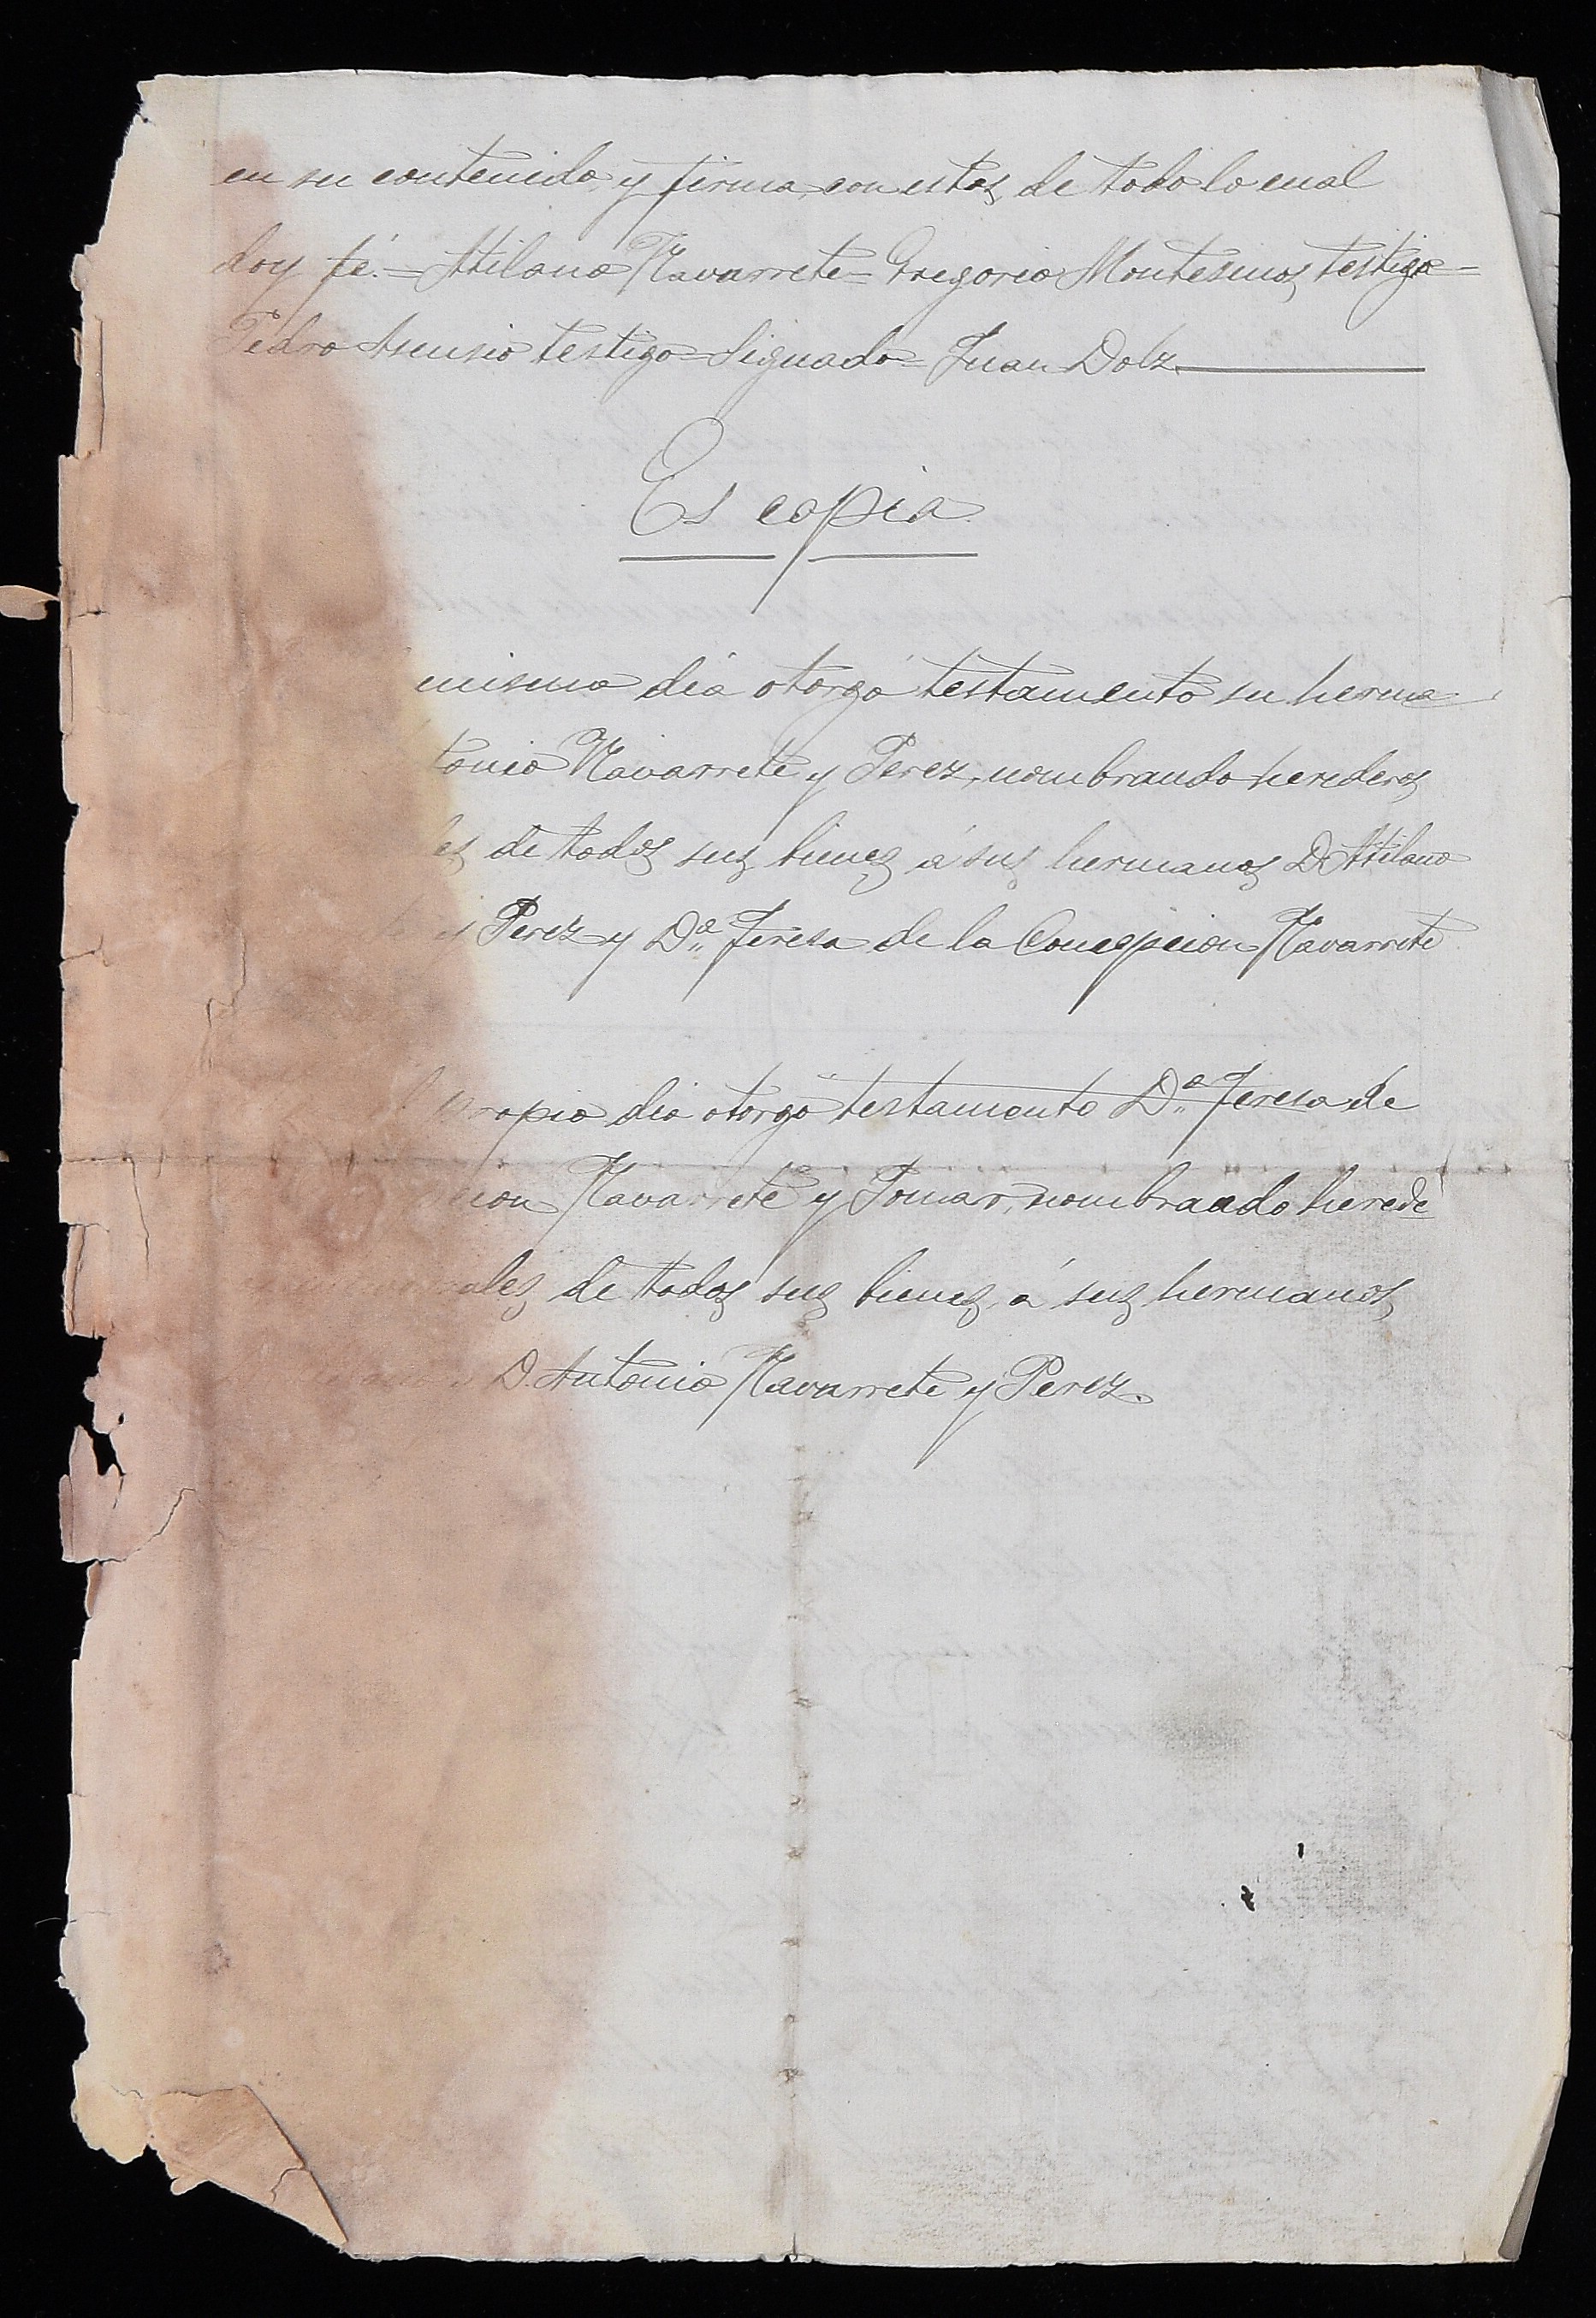 en su contenido, y firma con estos, de todo lo cual
doy fé.=Atilano Navarrete=Gregorio Montesinos, testigo=
Pedro Asensio testigo=Signado=Juan Dolz
Es copia
mismo día otorgó testamento su herma
tonio Navarrete y Perez, nombrando herederos
es de todos sus bienes á sus hermanos D. Atilano
y Perez y D.ª Teresa de la Concepcion Navarrete
propio dia otorgó testamento D.ª Teresa de
cion Navarrete y Pomar, nombrando herede
ales de todos sus bienes, á sus hermanos,
D. Antonio Navarrete y Perez.